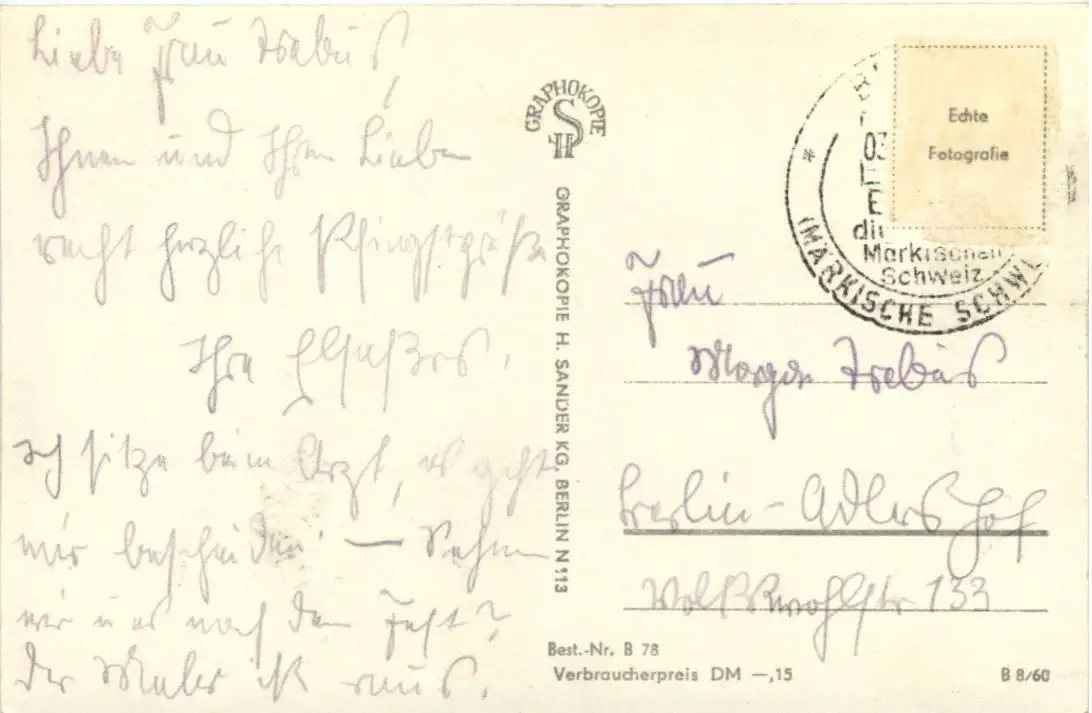 Liebe Frau Trebus,
Ihnen und Ihren Lieben
recht herzliche Pfingstgrüße
Ihre
Ich sitze beim Arzt, es geht
mir bescheiden — Sehen
wir uns nach dem Fest?
Der Maler ist raus.
GRAPHOKOPIE
HS
GRAPHOKOPIE H. SANDER KG, BERLIN N 113
Echte
Fotografie
03
E
die
Märkischen
Schweiz
(MÄRKISCHE SCHW
Frau
Trebus
Berlin-Adlershof
Volkswohlstr 133
Best.-Nr. B 78
Verbraucherpreis DM —,15
B 8/60